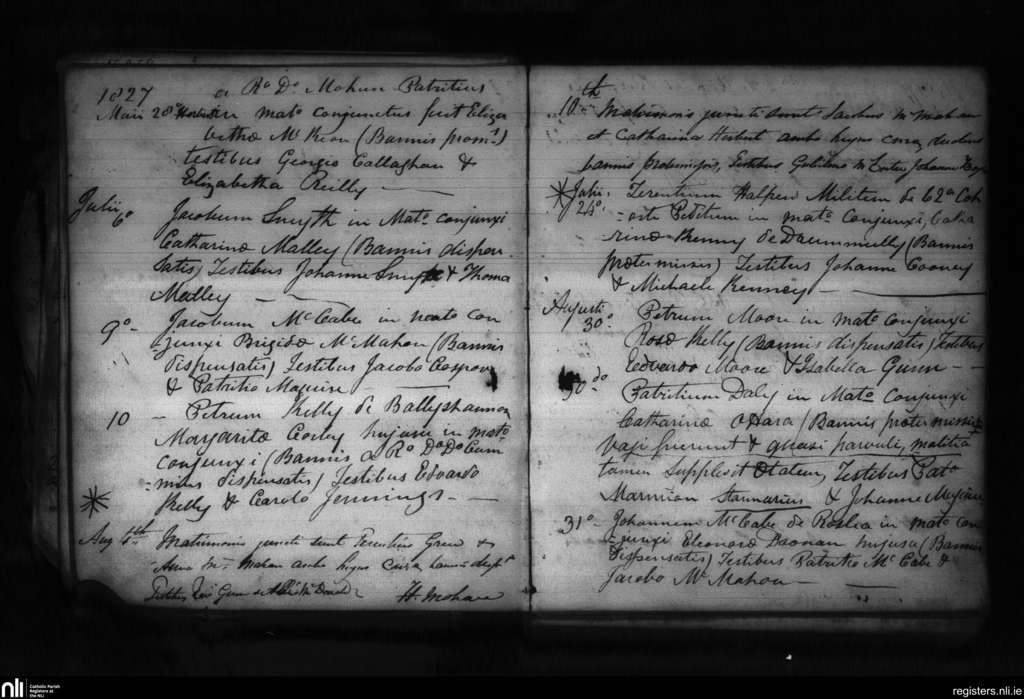 1827
a Ro. Do. Mahon Patritius
Maii 28o in mato conjunctus fuit Eliza
betha Mc Keon (Bannis prom)
testibus Georgio Callaghan &
Elizabetha Reilly —
Julii 6o Jacobum Smyth in Mato. conjunxi
Catharinæ Malley (Bannis dispen
satis) Testibus Johanne Smyth & Thoma
Malley —
9o- Jacobum McCabe in mato con
junxi Brigidæ McMahon (Bannis
dispensatis) Testibus Jacobo
& Patritio Maguire —
10 — Petrum Kelly de Ballyshannon
Margaritæ hujus in mato.
conjunxi (Bannis a Ro Do Do Cum
mins dispensatis) Testibus Edvardo
Kelly & Carolo Jennings. —
Aug 4th Matrimonio juncti sunt Terentius &
Anna Mc Mahon ambo hujus
Testibus
H. Mahon
10th Matrimonio juncti sunt Mc Mahon
et Catharina ambo hujus duobus
bannis Testibus Johanne
Julii 24o. Terentium Halpen Militem de 62a Coh
orte Petitum in mato Conjunxi, Catha
rinæ Kenny de Drummully (Bannis
prætermissis) Testibus Johanne Cooney
& Michaele Kenney —
Augusti 30o. Petrum Moore in mato conjunxi
Rosæ Kelly (Bannis dispensatis) Testibus
Edvardo Moore & Isabella Gunn — —
30 do Patritium Daly in Mato Conjunxi
Catharinæ OHara (Bannis prætermissis
Vagi fuerunt & quasi parvuli, malitia
tamen supplevit Ætatem, Testibus Pato
Marmion stannarius & Johanne Maguire
31o- Johannem McCabe de Roslea in mato con
junxi Eleonoræ hujus (Bannis
Dispensatis) Testibus Patritio McCabe &
Jacobo McMahon —
nli Catholic Parish
Registers at
the NLI
registers.nli.ie